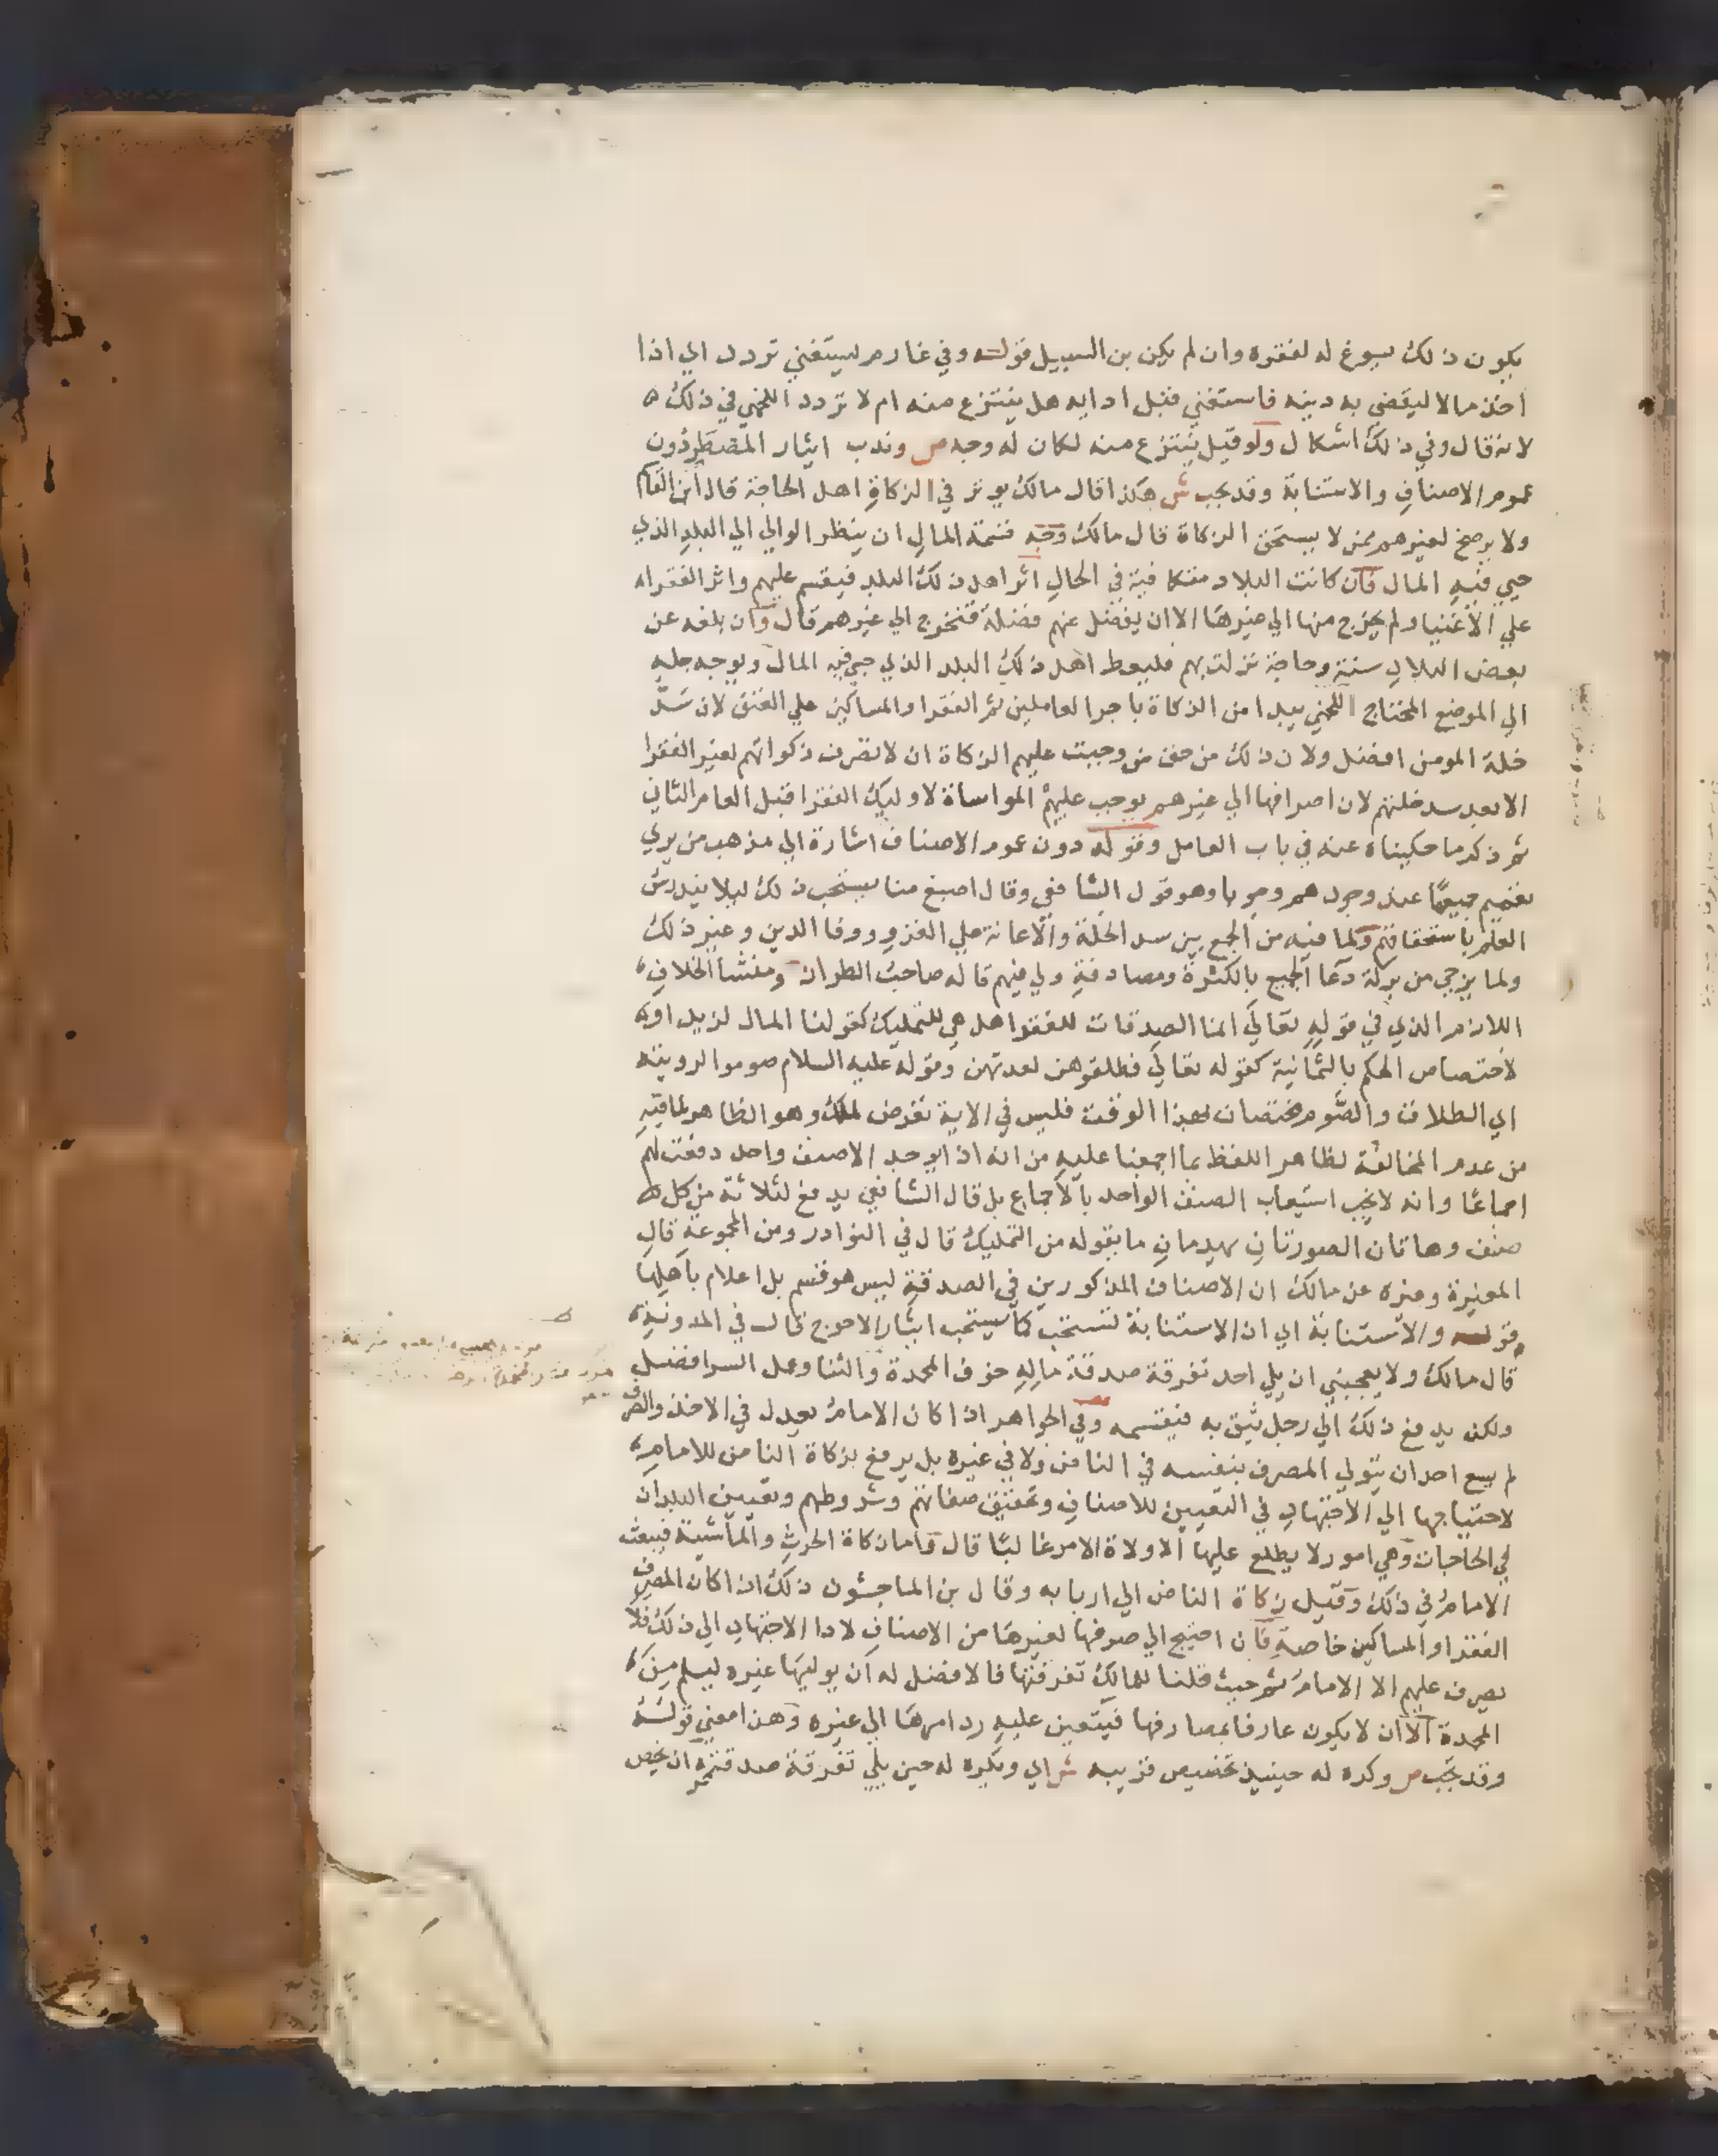 يكون ذلك يسوغ له لفقره وان لم يكن بن السبيل قوله وفي غارم يستغني تردد اي اذا
اخذ مالا ليقضي به دينه فاستغني قبل ادايه هل ينتزع منه ام لا تردد اللخمي في ذلك
لانه قال وفي ذلك اشكال ولو قيل ينتزع منه لكان له وجه ص وندب ايثار المضطر دون
عموم الاصناف والاستنابة وقد تجب ش هكذا قال مالك يوثر في الزكاة اهل الحاجة قال ابن القاسم
ولا يرضخ لغيرهم ممن لا يستحق الزكاة قال مالك وجه قسمة المال ان ينظر الوالي الي البلد الذي
جبي فيه المال فان كانت البلاد متكافية في الحال اثر اهل ذلك البلد فيقسم عليهم واثر الفقراء
علي الاغنيا ولم يخرج منها الي غيرها الا ان يفضل عنهم فضلة فتخرج الي غيرهم قال وان بلغه عن
بعض البلاد سنة وحاجة نزلت بهم فليعط اهل ذلك البلد الذي جبي فيه المال ويوجه جله
الي الموضع المحتاج اللخمي يبدا من الزكاة باجر العاملين ثم الفقرا والمساكين علي العتق لان سد
خلة المومن افضل ولان ذلك من حق من وجبت عليهم الزكاة ان لا تصرف زكواتهم لغير الفقرا
الا بعد سد خلتهم لان اصرافها الي غيرهم يوجب عليهم المواساة لاوليك الفقرا قبل العام الثاني
ثم ذكر ما حكيناه عنه في باب العامل وقوله دون عموم الاصناف اشارة الي مذهب من يري
تعميم جميعها عند وجودهم وجوبا وهو قول الشافعي وقال اصبغ منا يستحب ذلك ليلا يندرس
العلم باستحقاقهم ولما فيه من الجمع بين سد الخلة والاعانة علي الغزو ووفا الدين وغير ذلك
ولما يرجي من بركة دعا الجميع بالكثرة ومصادفة ولي فيهم قاله صاحب الطراز ومنشا الخلاف
اللازم الذي في قوله تعالي انما الصدقات للفقرا هل هي للتمليك كقولنا المال لزيد او
لاختصاص الحكم بالثمانية كقوله تعالي فطلقوهن لعدتهن وقوله عليه السلام صوموا لرويته
اي الطلاق والصوم مختصان بهذا الوقت فليس في الاية تعرض لملك وهو الظاهر لما فيه
من عدم المخالفة لظاهر اللفظ بما اجمعنا عليه من انه اذا لم يوجد الا صنف واحد دفعت لهم
اجماعا وانه لا يجب استيعاب الصنف الواحد بالاجماع بل قال الشافعي يدفع لثلاثة من كل
صنف وهاتان الصورتان يهدمان ما يقوله من التمليك قال في النوادر ومن المجموعة قال
المغيرة وغيره عن مالك ان الاصناف المذكورين في الصدقة ليس هو قسم بل اعلام باهلها
قوله والاستنابة اي ان الاستنابة تستحب كما يستحب ايثار الاحوج قال في المدونة
قال مالك ولا يعجبني ان يلي احد تفرقة صدقة ماله خوف المحمدة والثنا وعمل السر افضل
ولكن يدفع ذلك الي رجل يثق به فيقسمه وفي الجواهر اذا كان الامام يعدل في الاخذ والصرف
لم يسع احد ان يتولي المصرف بنفسه في الناض ولا في غيره بل يرفع بزكاة الناض للامام
لاحتياجها الي الاجتهاد في التعيين للاصناف وتحقيق صفاتهم وشروطهم وتعيين البلدان
في الحاجات وهي امور لا يطلع عليها الا ولاة الامر غالبا قال واما زكاة الحرث والماشية فيبعث
الامام في ذلك وقيل زكاة الناض الي اربابه وقال بن الماجشون ذلك اذا كان المصرف
الفقرا والمساكين خاصة فان احتيج الي صرفها لغيرها من الاصناف لادا الاجتهاد الي ذلك فلا
يصرف عليهم الا الامام ثم حيث قلنا للمالك تفرقتها فالافضل له ان يوليها غيره ليسلم من
المحمدة الا ان لا يكون عارفا بمصارفها فيتعين عليه رد امرها الي غيره وهذا معني قوله
وقد تجب ص وكره له حينيذ تخصيص قريبه ش اي ويكره له حين يلي تفرقة صدقته ان يخص